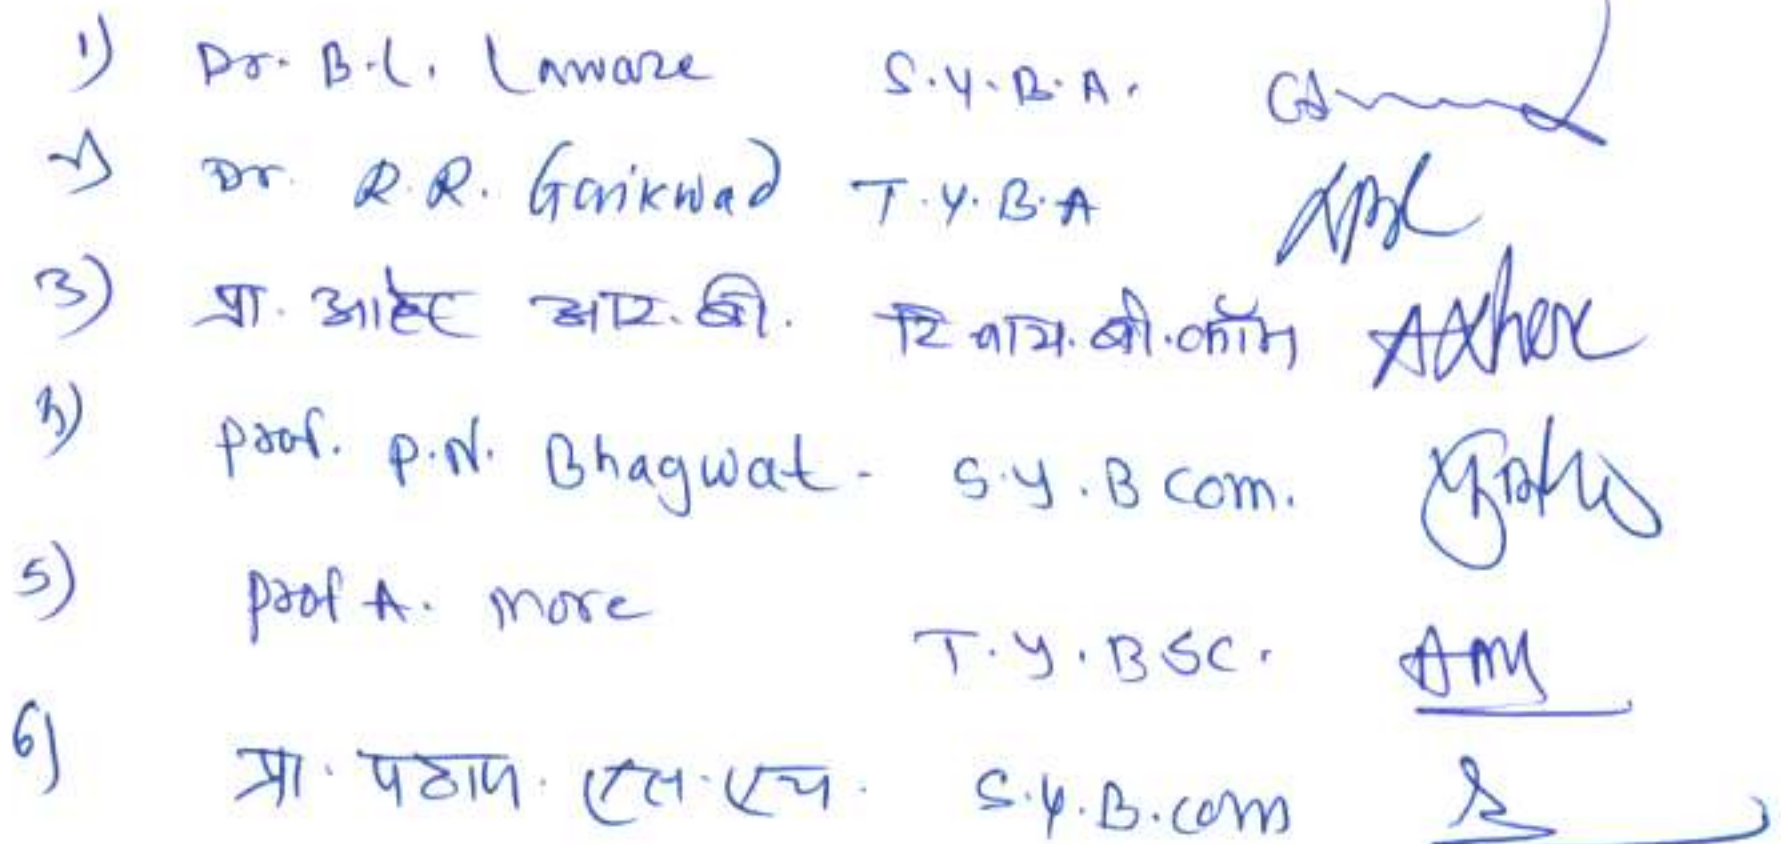 1) Dr. B.L. Laware S.Y.B.A.
2) Dr. R.R. Gaikwad T.Y.B.A
3) प्रा. आहेर आर.बी. टि वाय.बी.कॉम Aher
4) prof. P.N. Bhagwat - S.Y.B com.
5) prof A. more T.Y.BSC.
6) प्रा. पठाण. एस.एच. S.Y.B.com